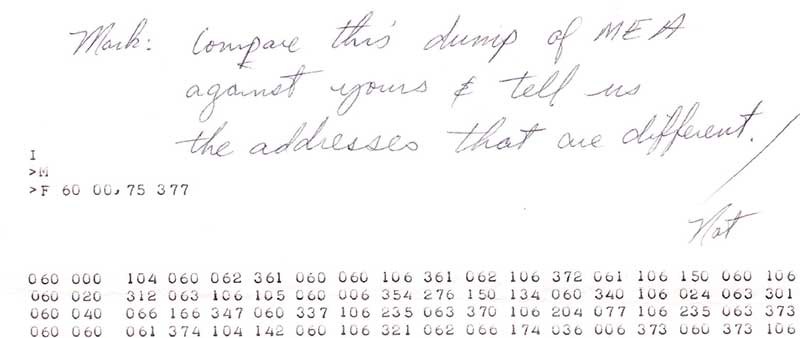 Mark: Compare this dump of MEA
against yours & tell us
the addresses that are different.
I
>M
>F 60 00,75 377
Nat
060 000 104 060 062 361 060 060 106 361 062 106 372 061 106 150 060 106
060 020 312 063 106 105 060 006 354 276 150 134 060 340 106 024 063 301
060 040 066 166 347 060 337 106 235 063 370 106 204 077 106 235 063 373
060 060 061 374 104 142 060 106 321 062 066 174 036 006 373 060 373 106